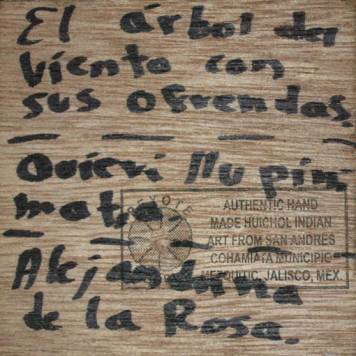 El árbol del
viento con
sus ofrendas.
matra
Alejandrina
de la Rosa.
PEYOTE
AUTHENTIC HAND
MADE HUICHOL INDIAN
ART FROM SAN ANDRES
COHAMIATA MUNICIPIC
MEZQUITIC, JALISCO, MEX.